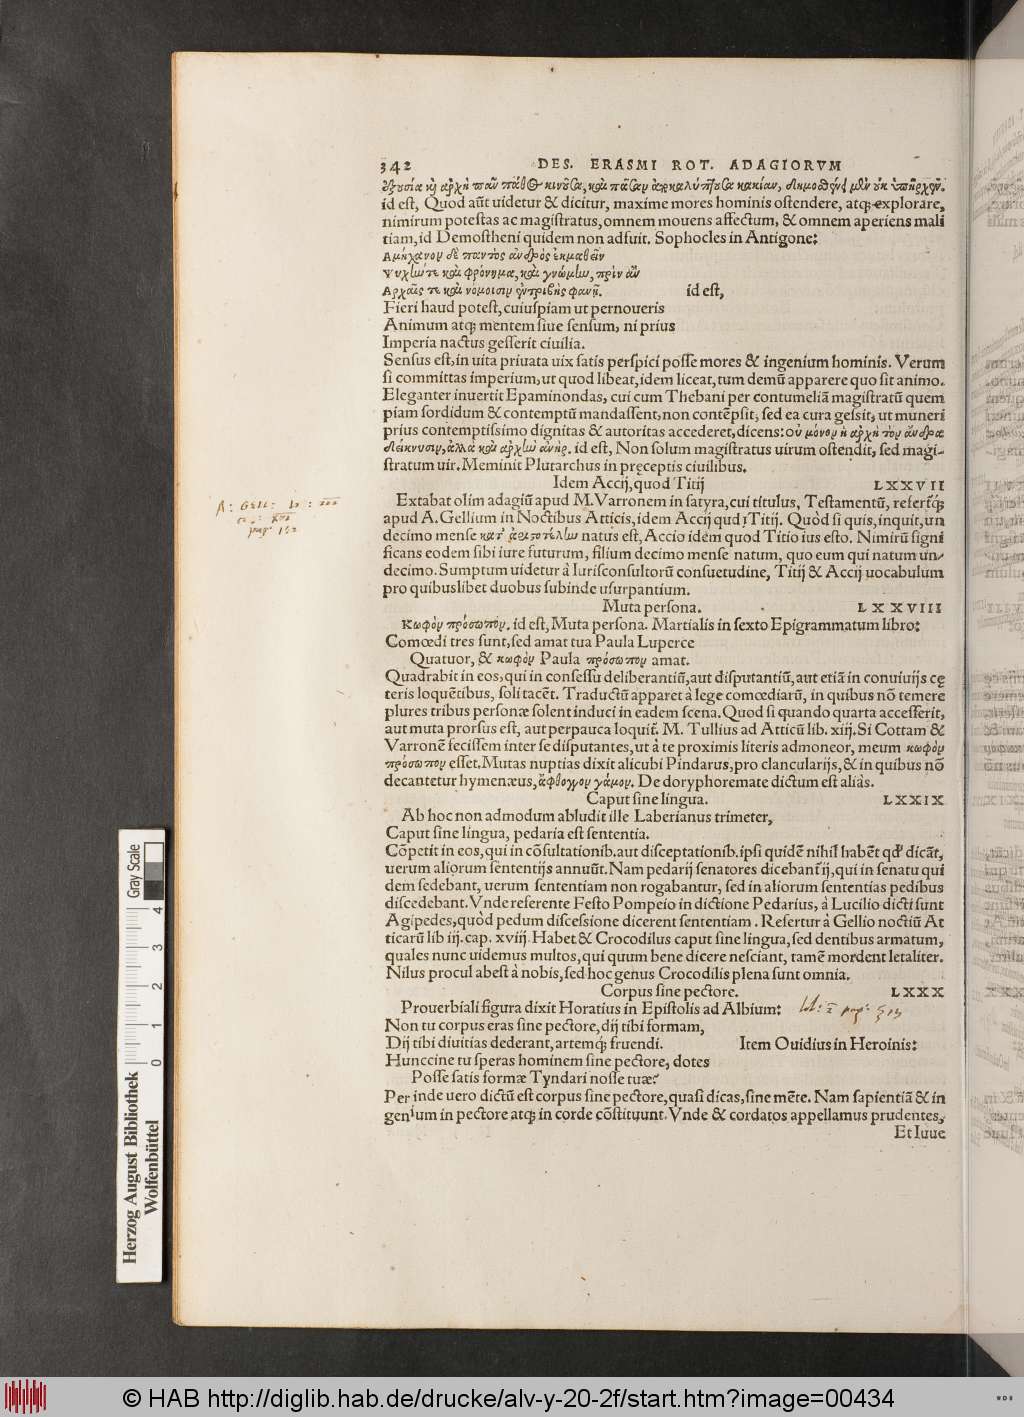 342 DES. ERASMI ROT. ADAGIORVM
id est, Quod aūt uidetur & dicitur, maxime mores hominis ostendere, atq; explorare,
nimirum potestas ac magistratus, omnem mouens affectum, & omnem aperiens mali
tiam, id Demostheni quidem non adfuit. Sophocles in Antigone:
Αμήχανον δὲ παντὸς ἀνδρὸς ἐκμαθεῖν
Ψυχήν τε καὶ φρόνημα, καὶ γνώμην, πρὶν ἂν
Αρχαῖς τε καὶ νόμοισιν ἐντριβὴς φανῇ. id est,
Fieri haud potest, cuiuspiam ut pernoueris
Animum atq; mentem siue sensum, ni prius
Imperia nactus gesserit ciuilia.
Sensus est, in uita priuata uix satis perspici posse mores & ingenium hominis. Verum
si committas imperium, ut quod libeat, idem liceat, tum demū apparere quo sit animo.
Eleganter inuertit Epaminondas, cui cum Thebani per contumeliā magistratū quem
piam sordidum & contemptū mandassent, non contēpsit, sed ea cura gessit, ut muneri
prius contemptissimo dignitas & autoritas accederet, dicens: οὐ μόνον ἡ ἀρχὴ τὸν ἄνδρα
δείκνυσιν, ἀλλὰ καὶ ἀρχὴν ἀνήρ. id est, Non solum magistratus uirum ostendit, sed magi-
stratum uir. Meminit Plutarchus in pręceptis ciuilibus.
Idem Accij, quod Titij LXXVII
Extabat olim adagiū apud M. Varronem in satyra, cui titulus, Testamentū, refertq́;
apud A. Gellium in Noctibus Atticis, idem Accij qud Titij. Quòd si quis, inquit, un
decimo mense κατ' ἀριστοτέλην natus est, Accio idem quod Titio ius esto. Nimirū signi
ficans eodem sibi iure futurum, filium decimo mense natum, quo eum qui natum un-
decimo. Sumptum uidetur à Iurisconsultorū consuetudine, Titij & Accij uocabulum
pro quibuslibet duobus subinde usurpantium.
Muta persona. LXXVIII
Κωφὸν πρόσωπον. id est, Muta persona. Martialis in sexto Epigrammatum libro:
Comœdi tres sunt, sed amat tua Paula Luperce
Quatuor, & κωφὸν Paula πρόσωπον amat.
Quadrabit in eos, qui in consessu deliberantiū, aut disputantiū, aut etiā in conuiuijs cę
teris loquētibus, soli tacēt. Traductū apparet à lege comœdiarū, in quibus nō temere
plures tribus personæ solent induci in eadem scena. Quod si quando quarta accesserit,
aut muta prorsus est, aut perpauca loquit̄. M. Tullius ad Atticū lib. xiij. Si Cottam &
Varronē fecissem inter se disputantes, ut à te proximis literis admoneor, meum κωφὸν
πρόσωπον esset. Mutas nuptias dixit alicubi Pindarus, pro clancularijs, & in quibus nō
decantetur hymenæus, ἄφθογγον γάμον. De doryphoremate dictum est aliàs.
Caput sine lingua. LXXIX
Ab hoc non admodum abludit ille Laberianus trimeter,
Caput sine lingua, pedaria est sententia.
Cōpetit in eos, qui in cōsultationib. aut disceptationib. ipsi quidē nihil habēt qd' dicāt,
uerum aliorum sententijs annuūt. Nam pedarij senatores dicebant̄ ij, qui in senatu qui
dem sedebant, uerum sententiam non rogabantur, sed in aliorum sententias pedibus
discedebant. Vnde referente Festo Pompeio in dictione Pedarius, à Lucilio dicti sunt
Agipedes, quòd pedum discessione dicerent sententiam. Refertur à Gellio noctiū At
ticarū lib iij. cap. xviij. Habet & Crocodilus caput sine lingua, sed dentibus armatum,
quales nunc uidemus multos, qui quum bene dicere nesciant, tamē mordent letaliter.
Nilus procul abest à nobis, sed hoc genus Crocodilis plena sunt omnia.
Corpus sine pectore. LXXX
Prouerbiali figura dixit Horatius in Epistolis ad Albium:
Non tu corpus eras sine pectore, dij tibi formam,
Dij tibi diuitias dederant, artemq́; fruendi. Item Ouidius in Heroinis:
Hunccine tu speras hominem sine pectore, dotes
Posse satis formæ Tyndari nosse tuæ?
Per inde uero dictū est corpus sine pectore, quasi dicas, sine mēte. Nam sapientiā & in
genium in pectore atq; in corde cōstituunt. Vnde & cordatos appellamus prudentes,
Et Iuue
Gray Scale
0 1 2 3 4
Herzog August Bibliothek
Wolfenbüttel
© HAB http://diglib.hab.de/drucke/alv-y-20-2f/start.htm?image=00434